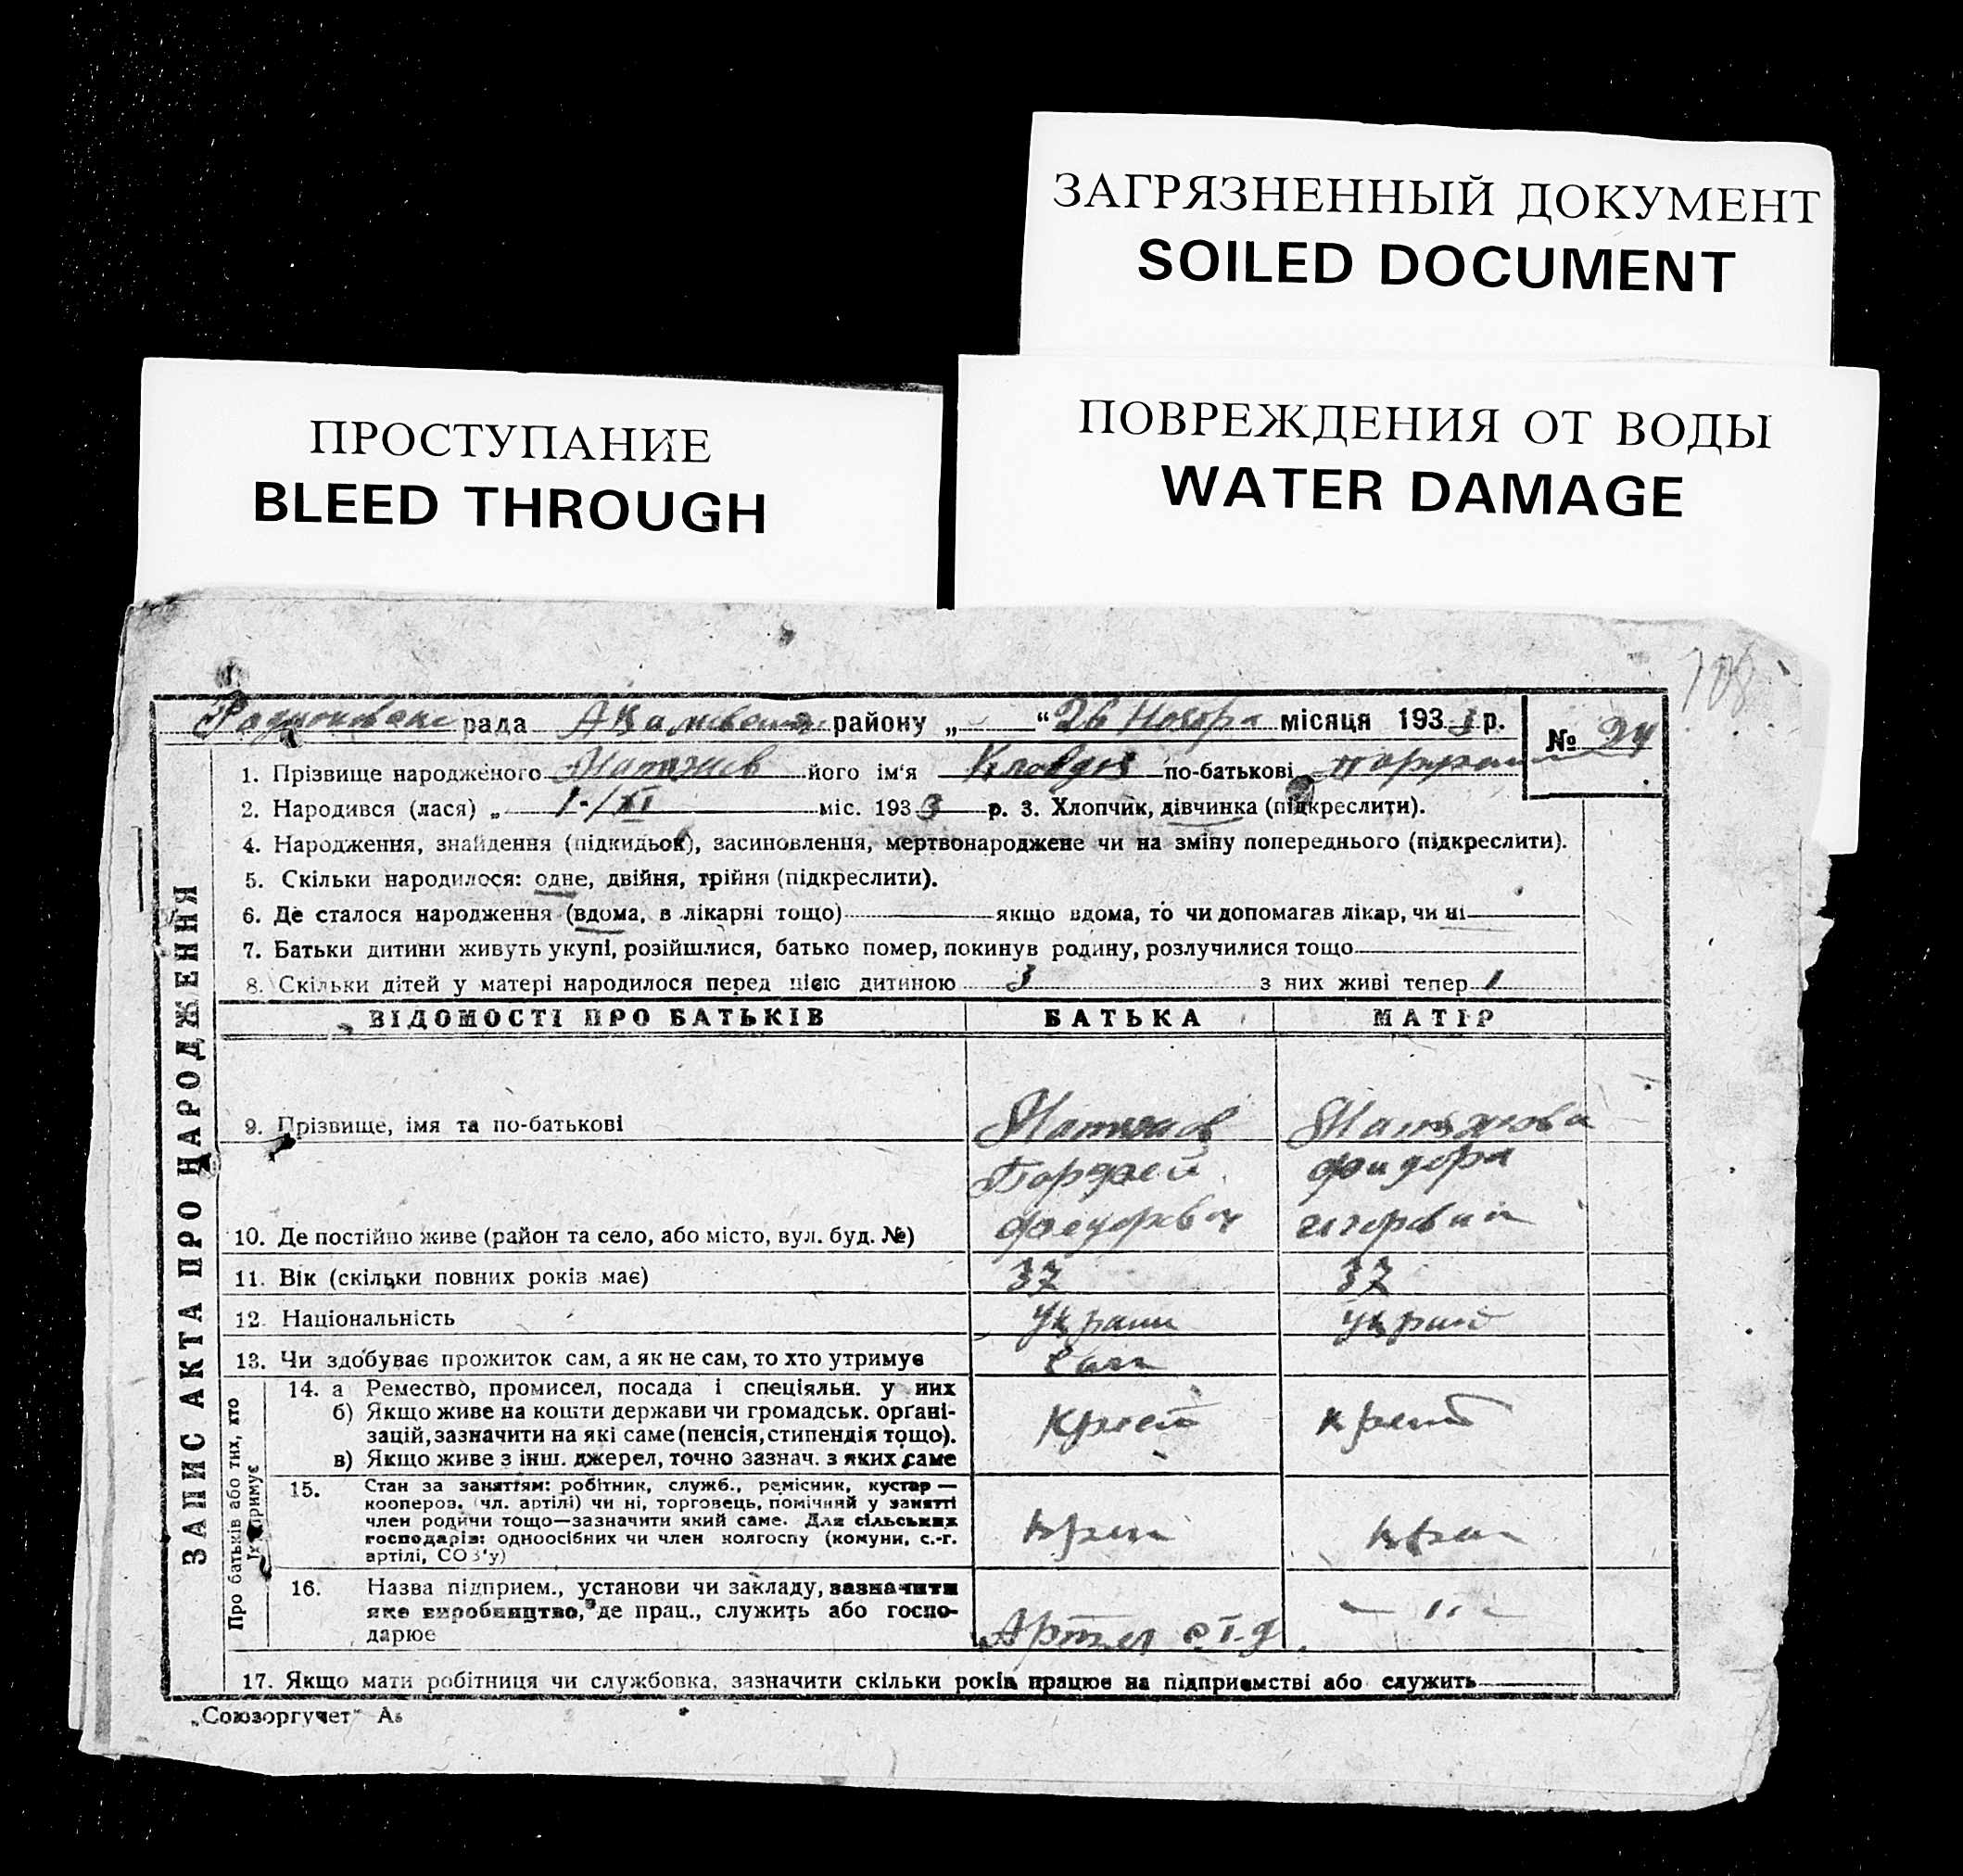 ЗАГРЯЗНЕННЫЙ ДОКУМЕНТ
SOILED DOCUMENT
ПРОСТУПАНИЕ
BLEED THROUGH
ПОВРЕЖДЕНИЯ ОТ ВОДЫ
WATER DAMAGE
108
рада району „ “ 26 Ноября місяця 1933 р.
№ 24
1. Прізвище народженого його ім'я Кловдия по-батькові
2. Народився (лася) „ 1-/XI міс. 1933 р. 3. Хлопчик, дівчинка (підкреслити).
4. Народження, знайдення (підкидьок), засиновлення, мертвонароджене чи на зміну попереднього (підкреслити).
5. Скільки народилося: одне, двійня, трійня (підкреслити).
6. Де сталося народження (вдома, в лікарні тощо) якщо вдома, то чи допомагав лікар, чи ні
7. Батьки дитини живуть укупі, розійшлися, батько помер, покинув родину, розлучилися тощо
8. Скільки дітей у матері народилося перед цією дитиною 3 з них живі тепер 1
ЗАПИС АКТА ПРО НАРОДЖЕННЯ
ВІДОМОСТІ ПРО БАТЬКІВ БАТЬКА МАТІР
9. Прізвище, імя та по-батькові
10. Де постійно живе (район та село, або місто, вул. буд. №)
11. Вік (скільки повних років має) 37 37
12. Національність Украин Украин
13. Чи здобуває прожиток сам, а як не сам, то хто утримує Сам
Про батьків або тих, хто їх утримує
14. а Ремество, промисел, посада і спеціяльн. у них
б) Якщо живе на кошти держави чи громадськ. органі-
зацій, зазначити на які саме (пенсія, стипендія тощо).
в) Якщо живе з інш. джерел, точно зазнач. з яких саме
Крест крест
15. Стан за заняттям: робітник, служб., ремісник, кустар —
коопероз. (чл. артілі) чи ні, торговець, помічний у занятті
член родини тощо—зазначити який саме. Для сільських
господарів: одноосібних чи член колгоспу (комуни, с.-г.
артілі, СОЗ'у)
16. Назва підприєм., установи чи закладу, зазначити
яке виробництво, де прац., служить або госпо-
дарює
Артел — 〃 —
17. Якщо мати робітниця чи службовка, зазначити скільки років працює на підприємстві або служить
„Союзоргучет“ А₅